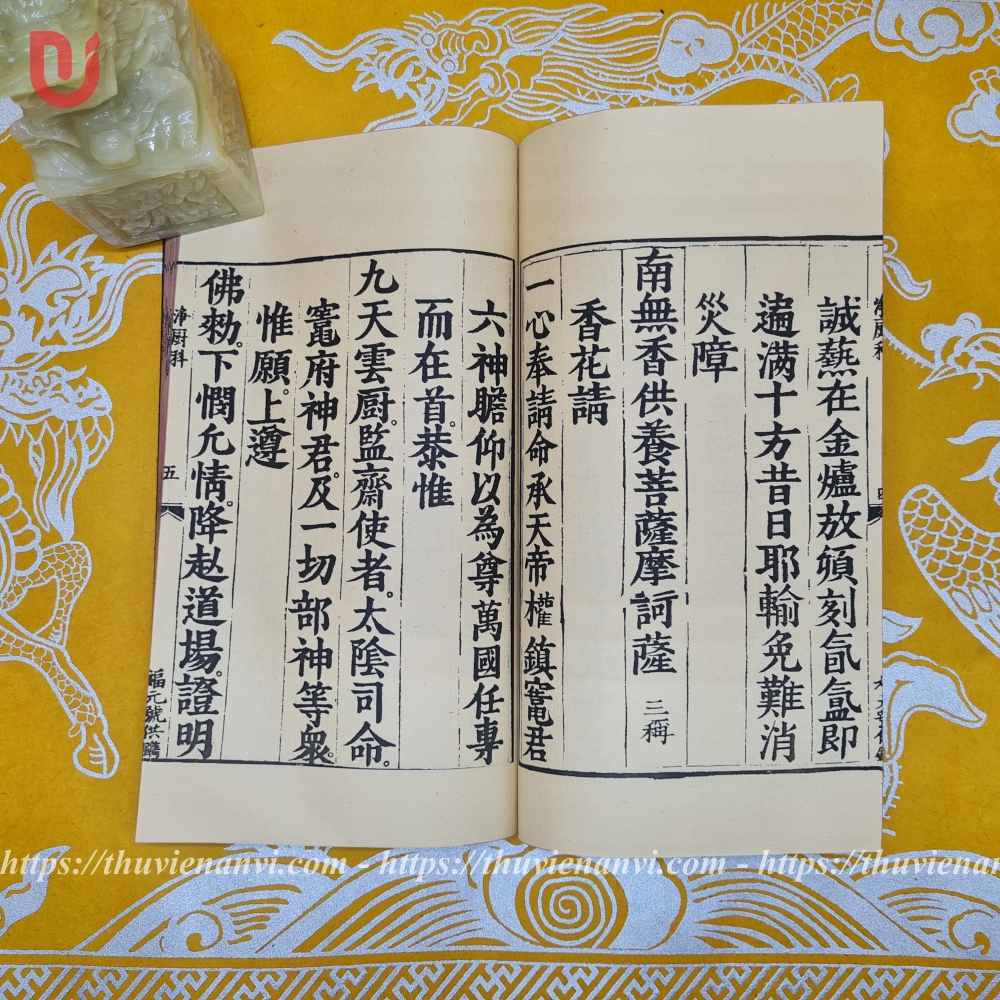 誠爇在金爐放頃刻氤氳即
遍满十方昔日耶輸免難消
災障
南無香供養菩薩摩訶薩 三稱
香花請
一心奉請命承天帝權鎮竈君
六神瞻仰以為尊萬國任專
而在首。恭惟
九天雲厨。監齋使者。太陰司命。
竈府神君。及一切部神等衆。
惟願。上遵
佛勑。下憫允情。降赴道場。證明
淨厨科
五
福元號供
https://thuvienanvi.com - https://thuvienanvi.com - https://thuvienan